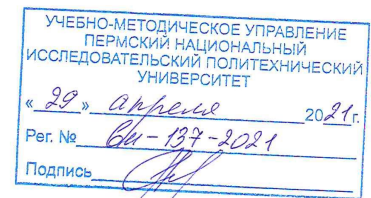 УЧЕБНО-МЕТОДИЧЕСКОЕ УПРАВЛЕНИЕ
ПЕРМСКИЙ НАЦИОНАЛЬНЫЙ
ИССЛЕДОВАТЕЛЬСКИЙ ПОЛИТЕХНИЧЕСКИЙ
УНИВЕРСИТЕТ
«29» апреля 2021г.
Рег. № Вн-137-2021
Подпись